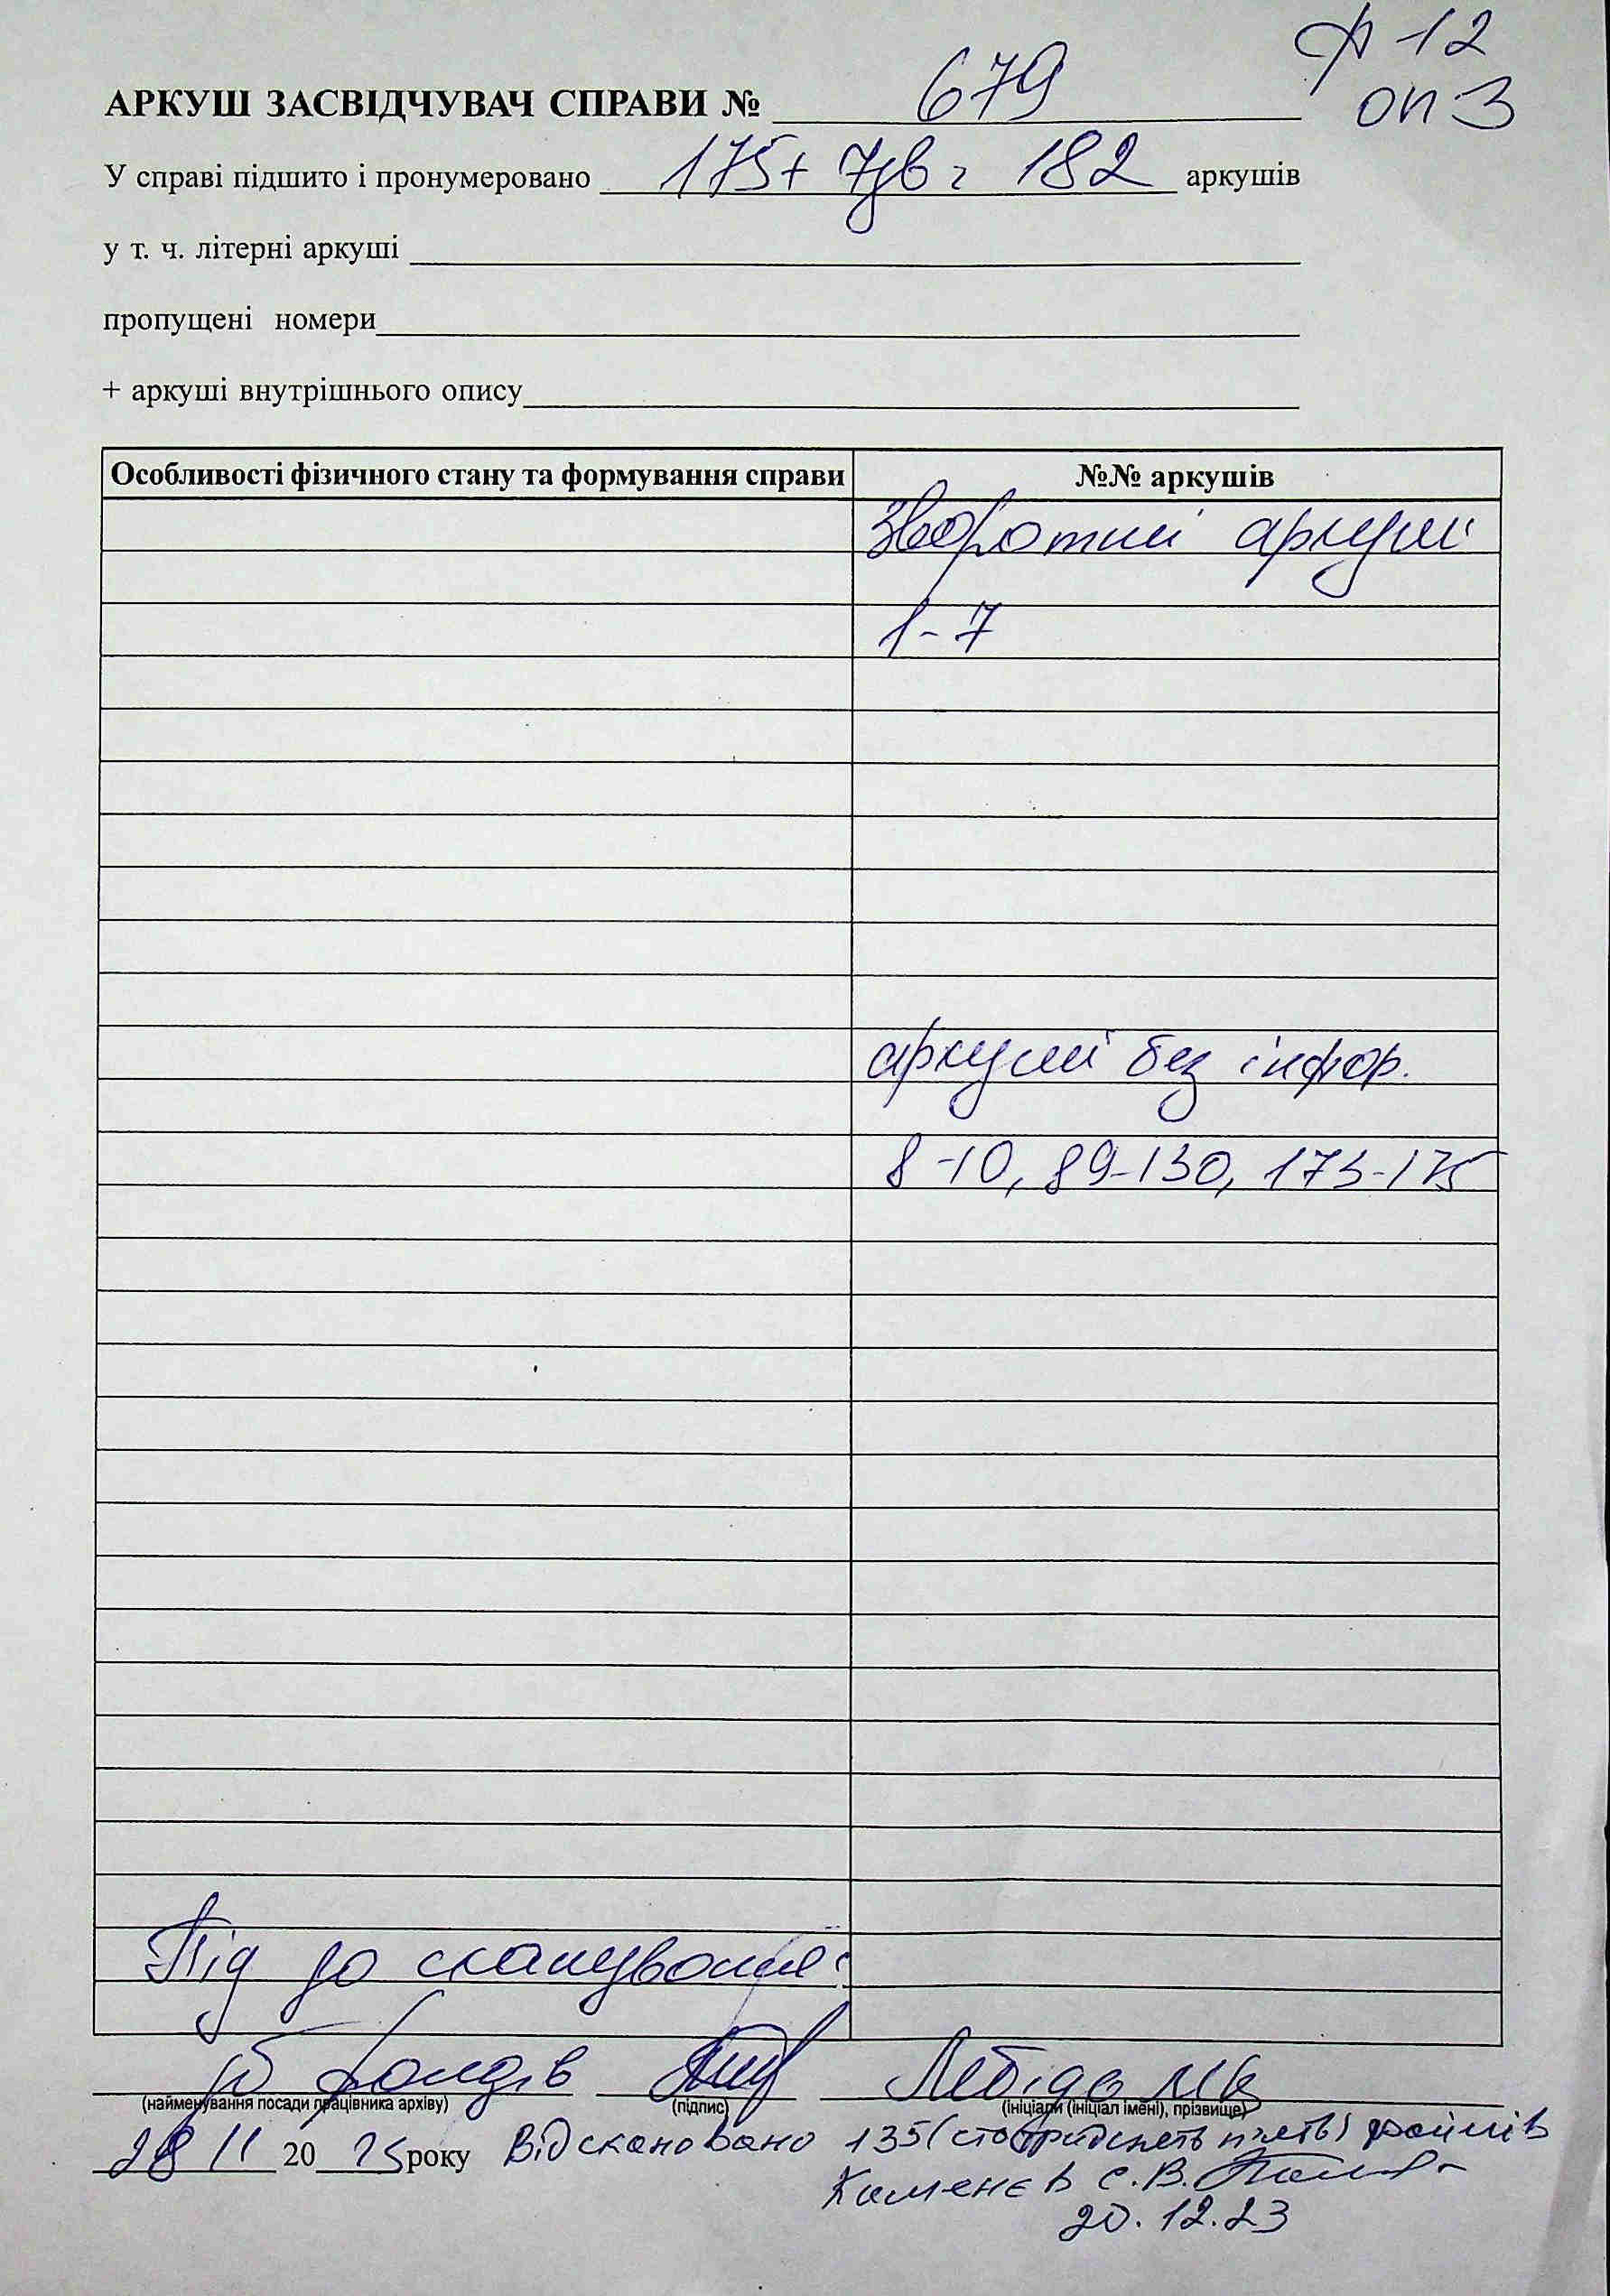 ф 12
оп 3
АРКУШ ЗАСВІДЧУВАЧ СПРАВИ № 679
У справі підшито і пронумеровано 175+ 7зв = 182 аркушів
у т. ч. літерні аркуші
пропущені номери
+ аркуші внутрішнього опису
Особливості фізичного стану та формування справи №№ аркушів
Зворотні аркуші
1-7
аркуші без інфор.
8-10, 89-130, 173-175
Під до сканування:
фондів Лебіда
(найменування посади працівника архіву) (підпис) (ініціали (ініціал імені), прізвище)
28 11 20 року Відскановано 135 (сто тридцять п'ять) файлів
Каменєв С.В.
20.12.23